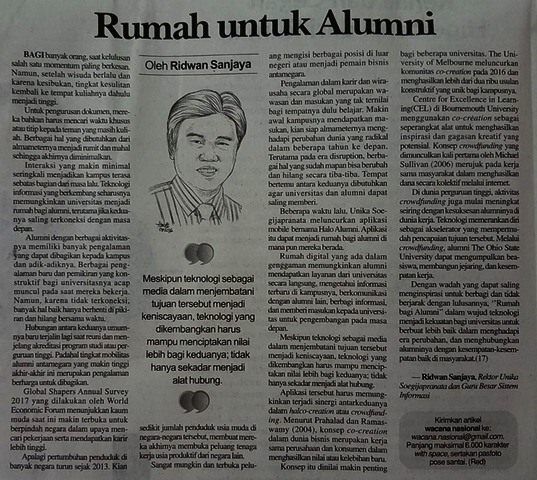 Rumah untuk Alumni
BAGI banyak orang, saat kelulusan
salah satu momentum paling berkesan.
Namun, setelah wisuda berlalu dan
karena kesibukan, tingkat kesulitan
kembali ke tempat kuliahnya dahulu
menjadi tinggi.
Untuk pengurusan dokumen, mere-
ka bahkan harus mencari waktu khusus
atau titip kepada teman yang masih kuli-
ah. Berbagai hal yang dibutuhkan dari
almameternya menjadi rumit dan mahal
sehingga akhirnya diminimalkan.
Interaksi yang makin minimal
seringkali menjadikan kampus terasa
sebatas bagian dari masa lalu. Teknologi
informasi yang berkembang seharusnya
memungkinkan universitas menjadi
rumah bagi alumni, terutama jika kedua-
nya saling terkoneksi dengan masa
depan.
Alumni dengan berbagai aktivitas-
nya memiliki banyak pengalaman
yang dapat dibagikan kepada kampus
dan adik-adiknya. Berbagai penga-
laman baru dan pemikiran yang kons-
truktif bagi universitasnya acap
muncul pada saat mereka bekerja.
Namun, karena tidak terkoneksi,
banyak hal baik hanya berhenti di piki-
ran dan hilang bersama waktu.
Hubungan antara keduanya umum-
nya baru terjalin lagi saat reuni dan men-
jelang akreditasi program studi atau per-
guruan tinggi. Padahal tingkat mobilitas
alumni antarnegara yang makin tinggi
akhir-akhir ini merupakan pengalaman
berharga untuk dibagikan.
Global Shapers Annual Survey
2017 yang dilakukan oleh World
Economic Forum menunjukkan kaum
muda saat ini makin terbuka untuk
berpindah negara dalam upaya men-
cari pekerjaan serta mendapatkan karir
lebih tinggi.
Apalagi pertumbuhan penduduk di
banyak negara turun sejak 2013. Kian
Oleh Ridwan Sanjaya
Meskipun teknologi sebagai
media dalam menjembatani
tujuan tersebut menjadi
keniscayaan, teknologi yang
dikembangkan harus
mampu menciptakan nilai
lebih bagi keduanya; tidak
hanya sekadar menjadi
alat hubung.
sedikit jumlah penduduk usia muda di
negara-negara tersebut, membuat mere-
ka akhirnya membuka peluang tenaga
kerja usia produktif dari negara lain.
Sangat mungkin dan terbuka pelu-
ang mengisi berbagai posisi di luar
negeri atau menjadi pemain bisnis
antarnegara.
Pengalaman dalam karir dan wira-
usaha secara global merupakan wa-
wasan dan masukan yang tak ternilai
bagi tempatnya dulu belajar. Makin
awal kampusnya mendapatkan ma-
sukan, kian siap almameternya meng-
hadapi perubahan dunia yang radikal
dalam beberapa tahun ke depan.
Terutama pada era disruption, berba-
gai hal yang sudah mapan bisa berubah
dan hilang secara tiba-tiba. Tempat
bertemu antar keduanya dibutuhkan
agar universitas dan alumni dapat
saling memberi.
Beberapa waktu lalu, Unika Soe-
gijapranata meluncurkan aplikasi
mobile bernama Halo Alumni. Aplikasi
itu dapat menjadi rumah bagi alumni di
mana pun mereka berada.
Rumah digital yang ada dalam
genggaman memungkinkan alumni
mendapatkan layanan dari universitas
secara langsung, mengetahui informasi
terbaru di kampusnya, berkomunikasi
dengan alumni lain, berbagi informasi,
dan memberi masukan kepada universi-
tas untuk pengembangan pada masa
depan.
Meskipun teknologi sebagai media
dalam menjembatani tujuan tersebut
menjadi keniscayaan, teknologi yang
dikembangkan harus mampu mencip-
takan nilai lebih bagi keduanya; tidak
hanya sekadar menjadi alat hubung.
Aplikasi tersebut harus memung-
kinkan terjadi sinergi antarkeduanya
dalam co-creation atau crowdfund-
ing. Menurut Prahalad dan Ramas-
wamy (2004), konsep co-creation
dalam dunia bisnis merupakan kerja
sama perusahaan dan konsumen dalam
menghasilkan nilai atau kelebihan baru.
Konsep itu dinilai makin penting
bagi beberapa universitas. The Uni-
versity of Melbourne meluncurkan
komunitas co-creation pada 2016 dan
menghasilkan lebih dari dua ribu usulan
konstruktif yang unik bagi kampusnya.
Centre for Excellence in Learn-
ing(CEL) di Bournemouth University
menggunakan co-creation sebagai
seperangkat alat untuk menghasilkan
inspirasi dan gagasan kreatif yang
potensial. Konsep crowdfunding yang
dimunculkan kali pertama oleh Michael
Sullivan (2006) merujuk pada kerja
sama masyarakat dalam menghimpun
dana secara kolektif melalui internet.
Di dunia perguruan tinggi, aktivitas
crowdfunding juga mulai meningkat
seiring dengan kesuksesan alumninya di
dunia kerja. Teknologi memerankan diri
sebagai akselerator yang mempermu-
dah pencapaian tujuan tersebut. Melalui
crowdfunding, alumni The Ohio State
University dapat mengumpulkan bea-
siswa, membangun jejaring, dan kesem-
patan kerja.
Dengan wadah yang dapat saling
menginspirasi untuk berbagi dan tidak
berjarak dengan lulusannya, "Rumah
bagi Alumni" dalam wujud teknologi
menjadi kekuatan bagi universitas untuk
berbuat lebih baik dalam menghadapi
era perubahan, dan menghubungkan
alumninya dengan kesempatan-kesem-
patan baik di masyarakat.(17)
— Ridwan Sanjaya, Rektor Unika
Soegijapranata dan Guru Besar Sistem
Informasi
Kirimkan artikel
wacana nasional ke:
wacana.nasional@gmail.com.
Panjang maksimal 6.000 karakter
with space, sertakan pasfoto
pose santai. (Red)